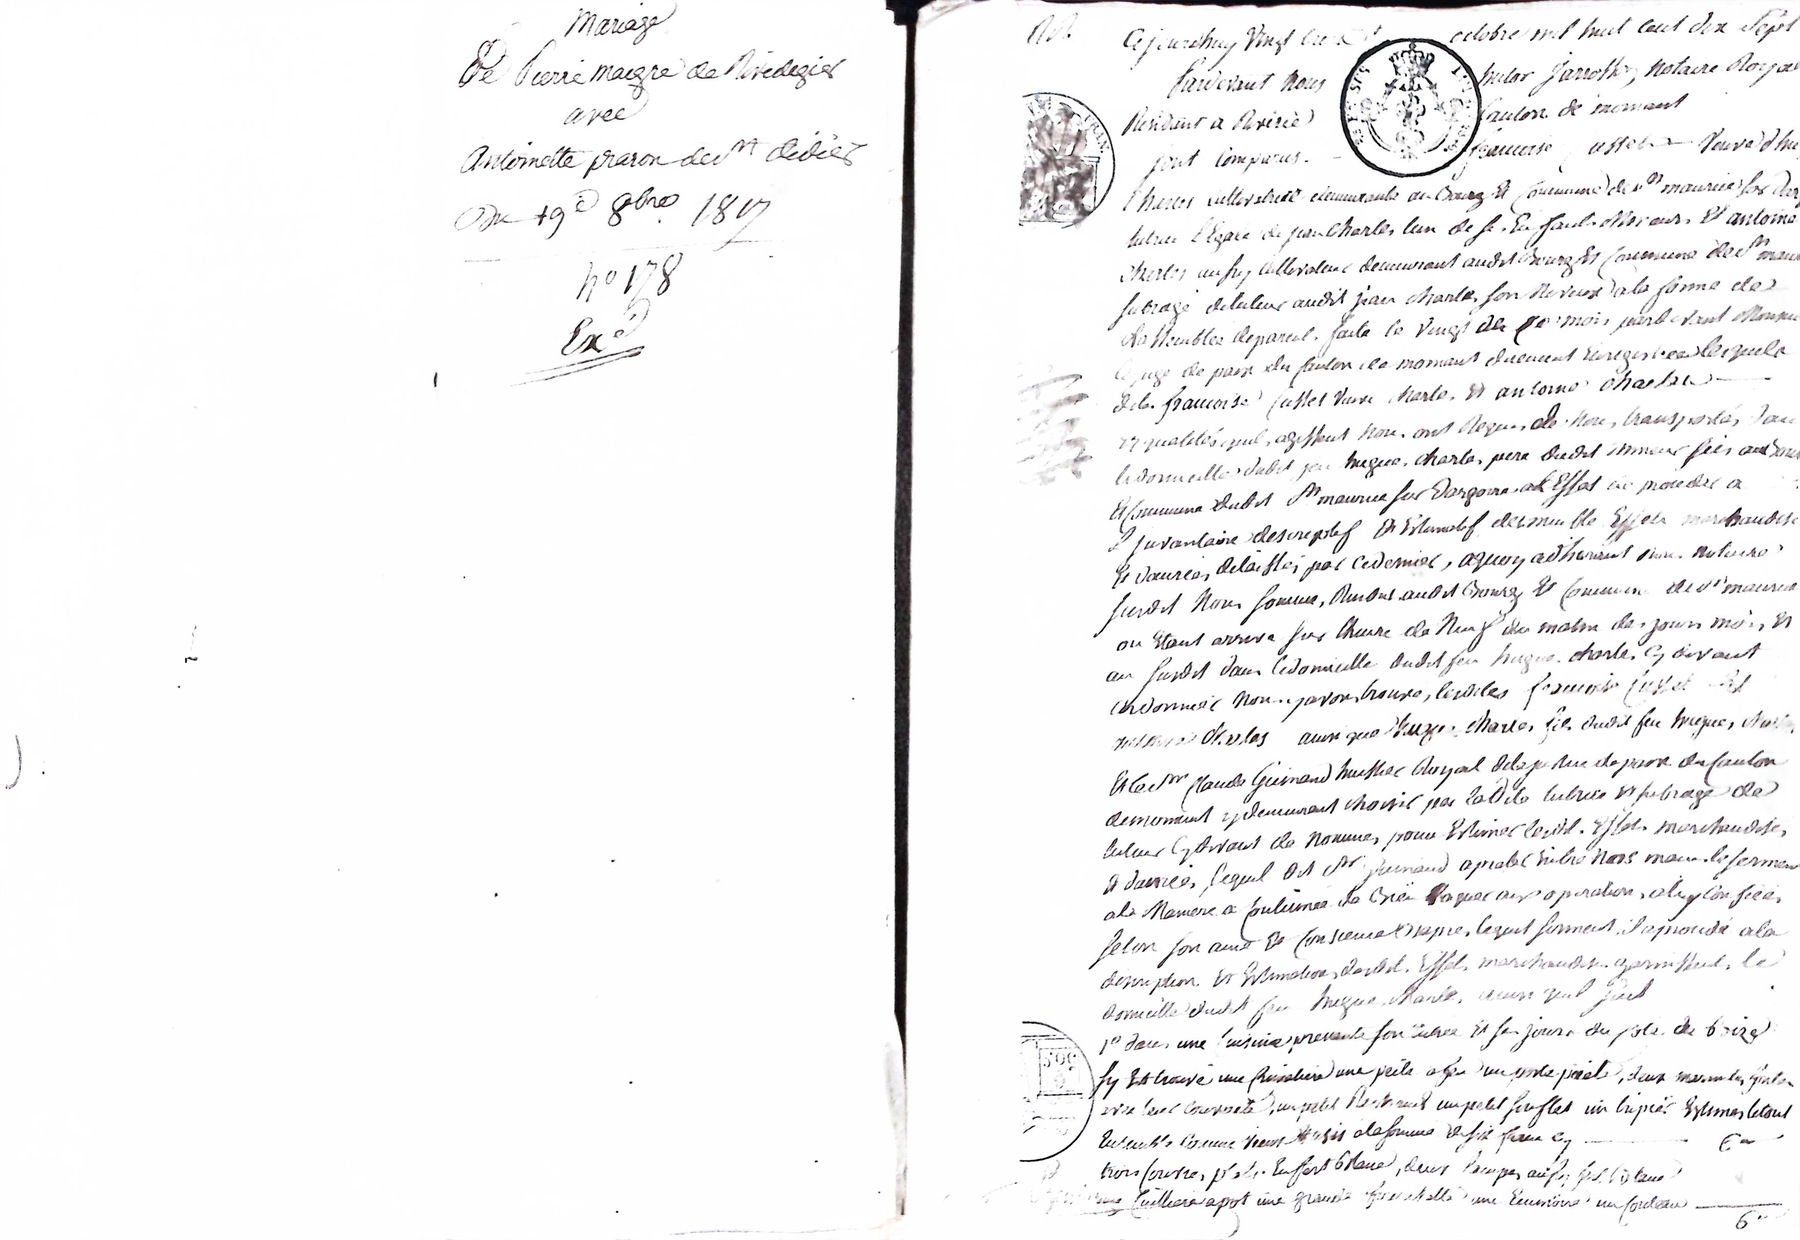 Mariage
De Pierre maigre de Rivedegier
avec
Antoinette praron de St didier
Du 19e 8bre 1817
no 178
Exé
Cejourdhuy Vingt octobre mil huit cent dix Sept
Pardevant Nous notaire Royal
Résidant a Riverie canton de mornant
sont comparus. françoise cusset Veuve d'hugue
Charles cultivatrice demeurante au Bourg Et Commune de St maurice sur Dargoire
tutrice Légale de jean Charles l'un de ses Enfants Mineurs Et antoine
Charles aussy cultivateur demeurant audit Bourg Et Commune de St maurice
subrogé detuteur audit jean charles son Neveu a la forme de
L'assemblée deparents faite le Vingt de ce mois pardevant Monsieur
le juge de paix du canton de mornant duement Enregistrée lesquels
dits françoise Cusset Veuve charles Et antoine charles
Et qualités quils agissent Nous ont Requis de Nous transporter dans
le domicille dudit feu hugue charles pere dudit mineur sis au Bourg
Et Commune dudit St maurice sur Dargoire a L'Effet de proceder a
L'jnvantaire descriptif Et Estimatif des meuble Effets marchandises
Et danrées délaissés par cedernier, aquoy adhérant nous notaire
susdit Nous sommes Rendus audit Bourg Et Commune de St maurice
ou Etant arrivé sur l'heure de Neuf du matin des jours mois Et
an susdit dans ledomicille dudit feu hugue charles Cy devant
cordonnier Nous y avons trouvé, lesdites françoise Cusset Et
antoine Charles ainsi que hugue charles fils dudit feu hugue charles
Et le sr Claude Guinand huissier Royal dela justice depaix du Canton
demornant y demeurant choisie par Ladite tutrice Et subrogé de
tuteur Cy devant de Nommés pour Estimer lesdit Effets marchandises
Et danrées, lequel dit Sr Guinand a prété Entre Nos mains le serment
a la Maniere a Coutumée de Bien Vaquer aux opérations a luy Confiées
selon son ame Et Conscience Et apres lequel serment il a procédé a la
description Et Estimation desdit Effets marchandises garnissant le
domicille dudit feu hugue charles ainsi quil suit
1o dans une Cuisine prenante son Entrée Et ses jours du coté de Bize
sy Est trouvé une Crémaliere une pelle a feu un porte poële, deux marmites fonte
avec leur couvercle, un petit Réchaud un petit soufflet un tripier Estimés letout
Ensemble Comme vieux usés alasomme desix francs Cy 6 "
trois Couvre plats En fert blanc, deux lampes aussy fert blanc
Cuilliere apot une grande fourchette une Ecumoire un Couteau
6 "